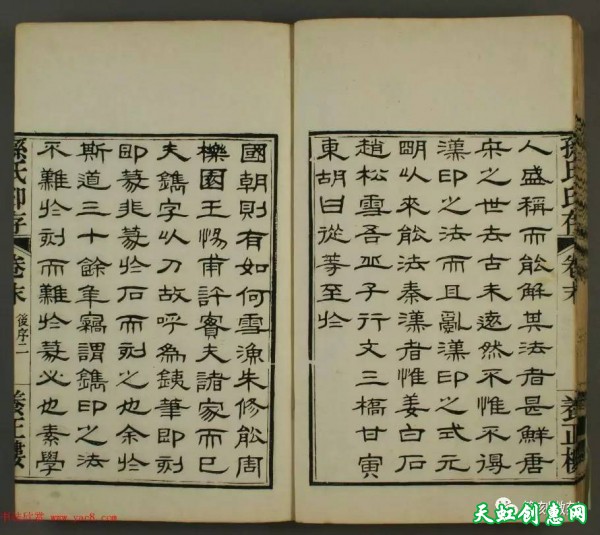 孫氏印存 卷末 養正樓
人盛稱而能解其法者甚鮮唐
宋之世去古未遠然不惟不得
漢印之法而且亂漢印之式元
明以來能法秦漢者惟姜白石
趙松雪吾丘子行文三橋甘寅
東胡曰從等至於
國朝則有如何雪漁朱修能周
櫟園王惕甫許賓夫諸家而已
夫鐫字以刀故呼為銕筆即刻
即篆非篆於石而刻之也余於
斯道三十餘年竊謂鐫印之法
不難於刻而難於篆必也素學
孫氏印存 卷末 後序二 養正樓
书法欣赏 www.yac8.com
天虹创惠网